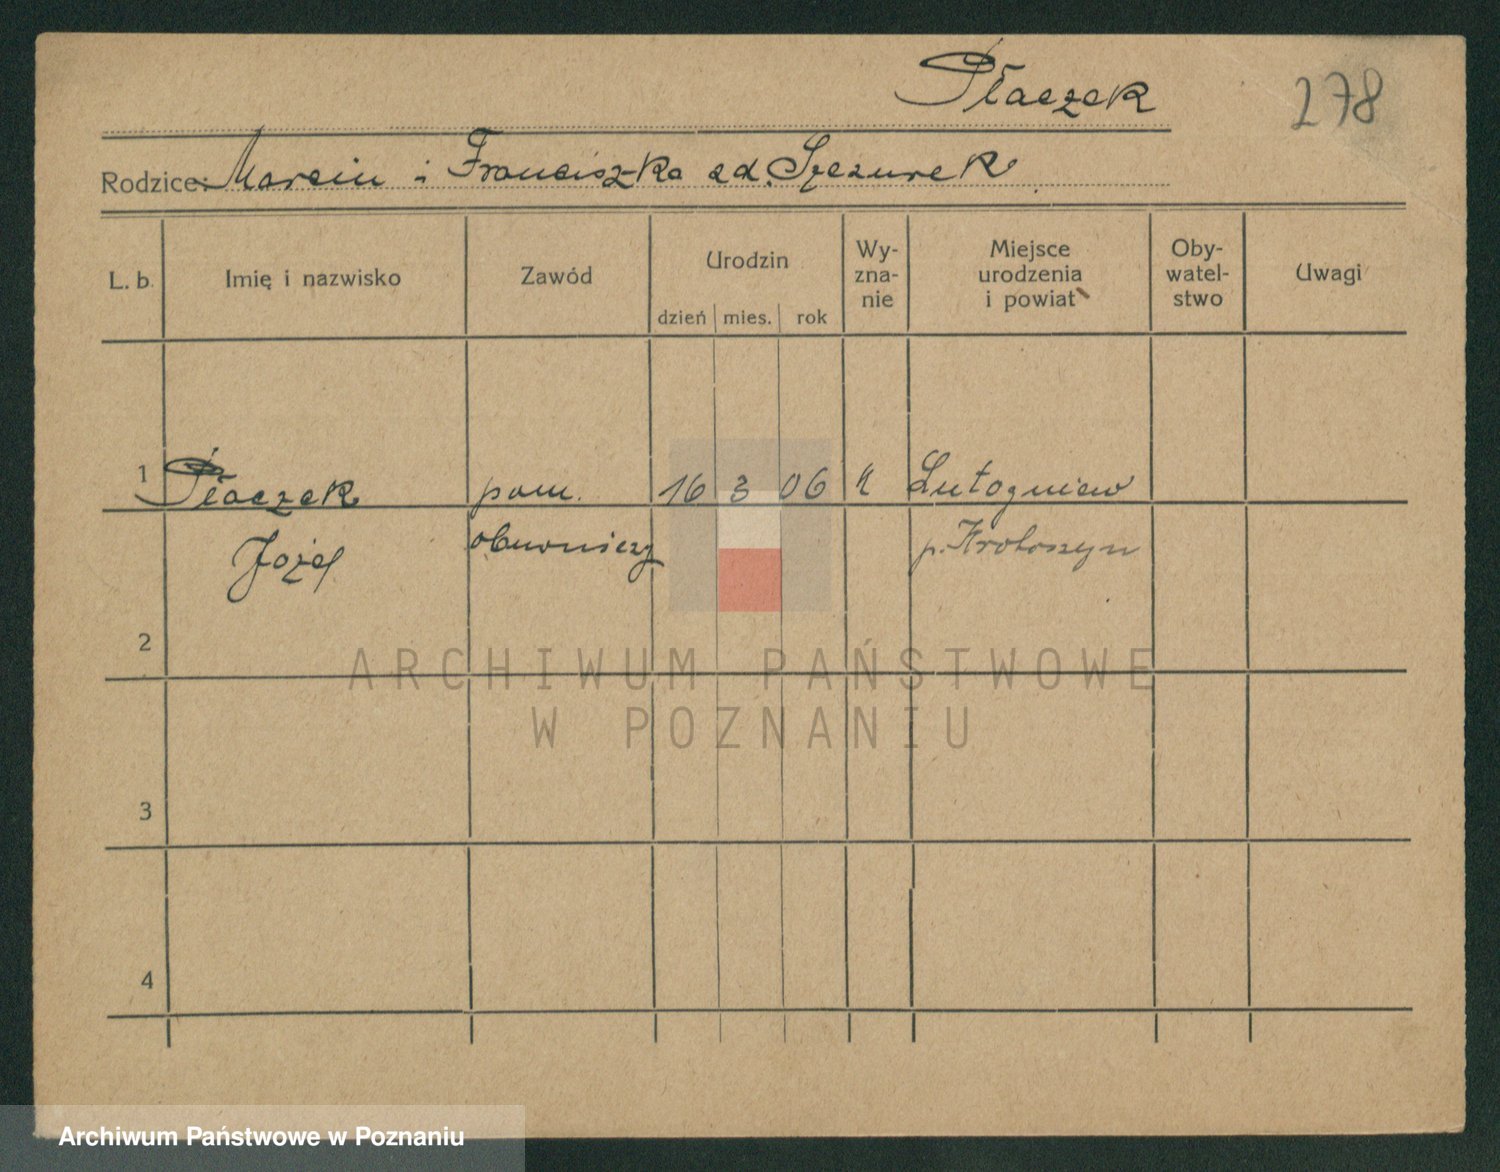 Płaczek
278
Rodzice: Marcin i Franciszka zd. Szczurek
L. b. Imię i nazwisko Zawód Urodzin dzień mies. rok Wy-zna-nie Miejsce urodzenia i powiat Oby-watel-stwo Uwagi
1 Płaczek pom. 16 3 06 k Lutogniew
Józef obuwniczy p. Krotoszyn
2
ARCHIWUM PAŃSTWOWE
W POZNANIU
3
4
Archiwum Państwowe w Poznaniu